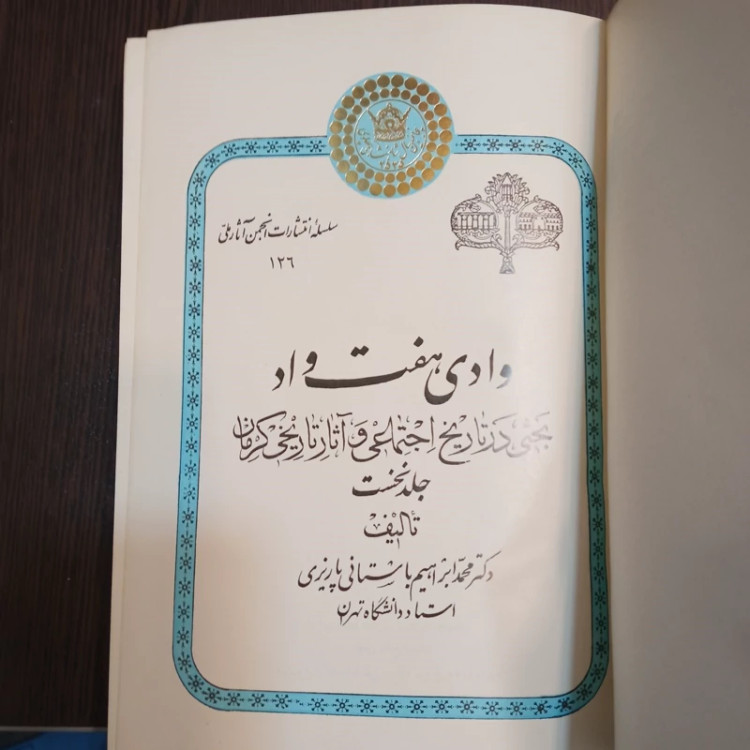 سلسلهٔ انتشارات انجمن آثار ملی
۱۲۶
وادی هفت واد
بحثی در تاریخ اجتماعی و آثار تاریخی کرمان
جلد نخست
تألیف
دکتر محمد ابراهیم باستانی پاریزی
استاد دانشگاه تهران